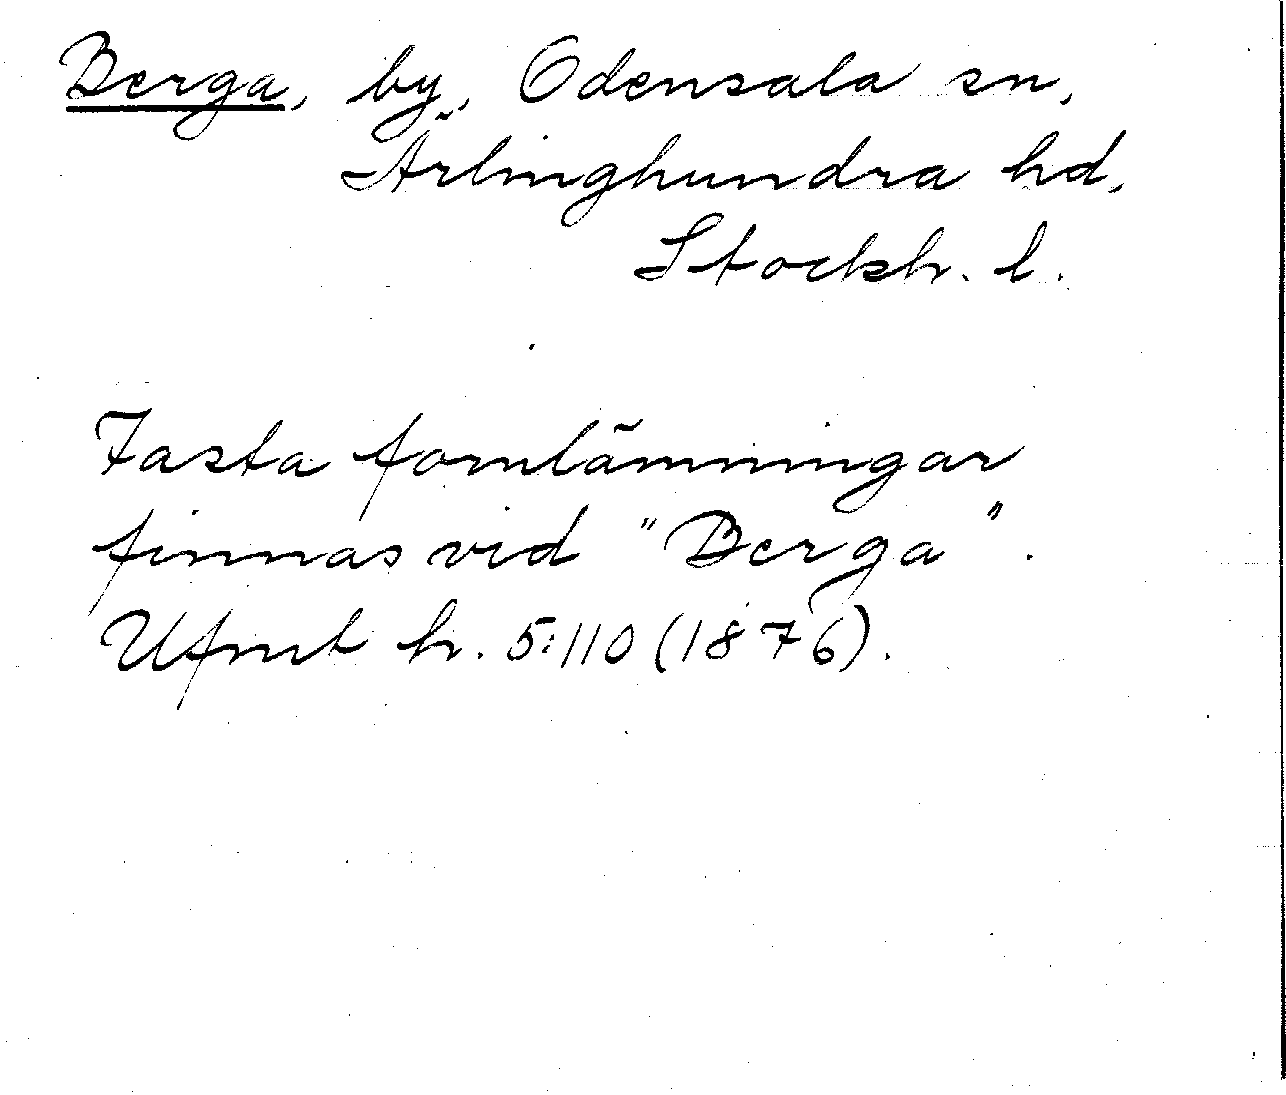 Berga, by, Odensala sn,
Ärlinghundra hd,
Stockh. l.
Fasta fornlämningar
finnas vid "Berga".
Ufmt h. 5:110 (1876).